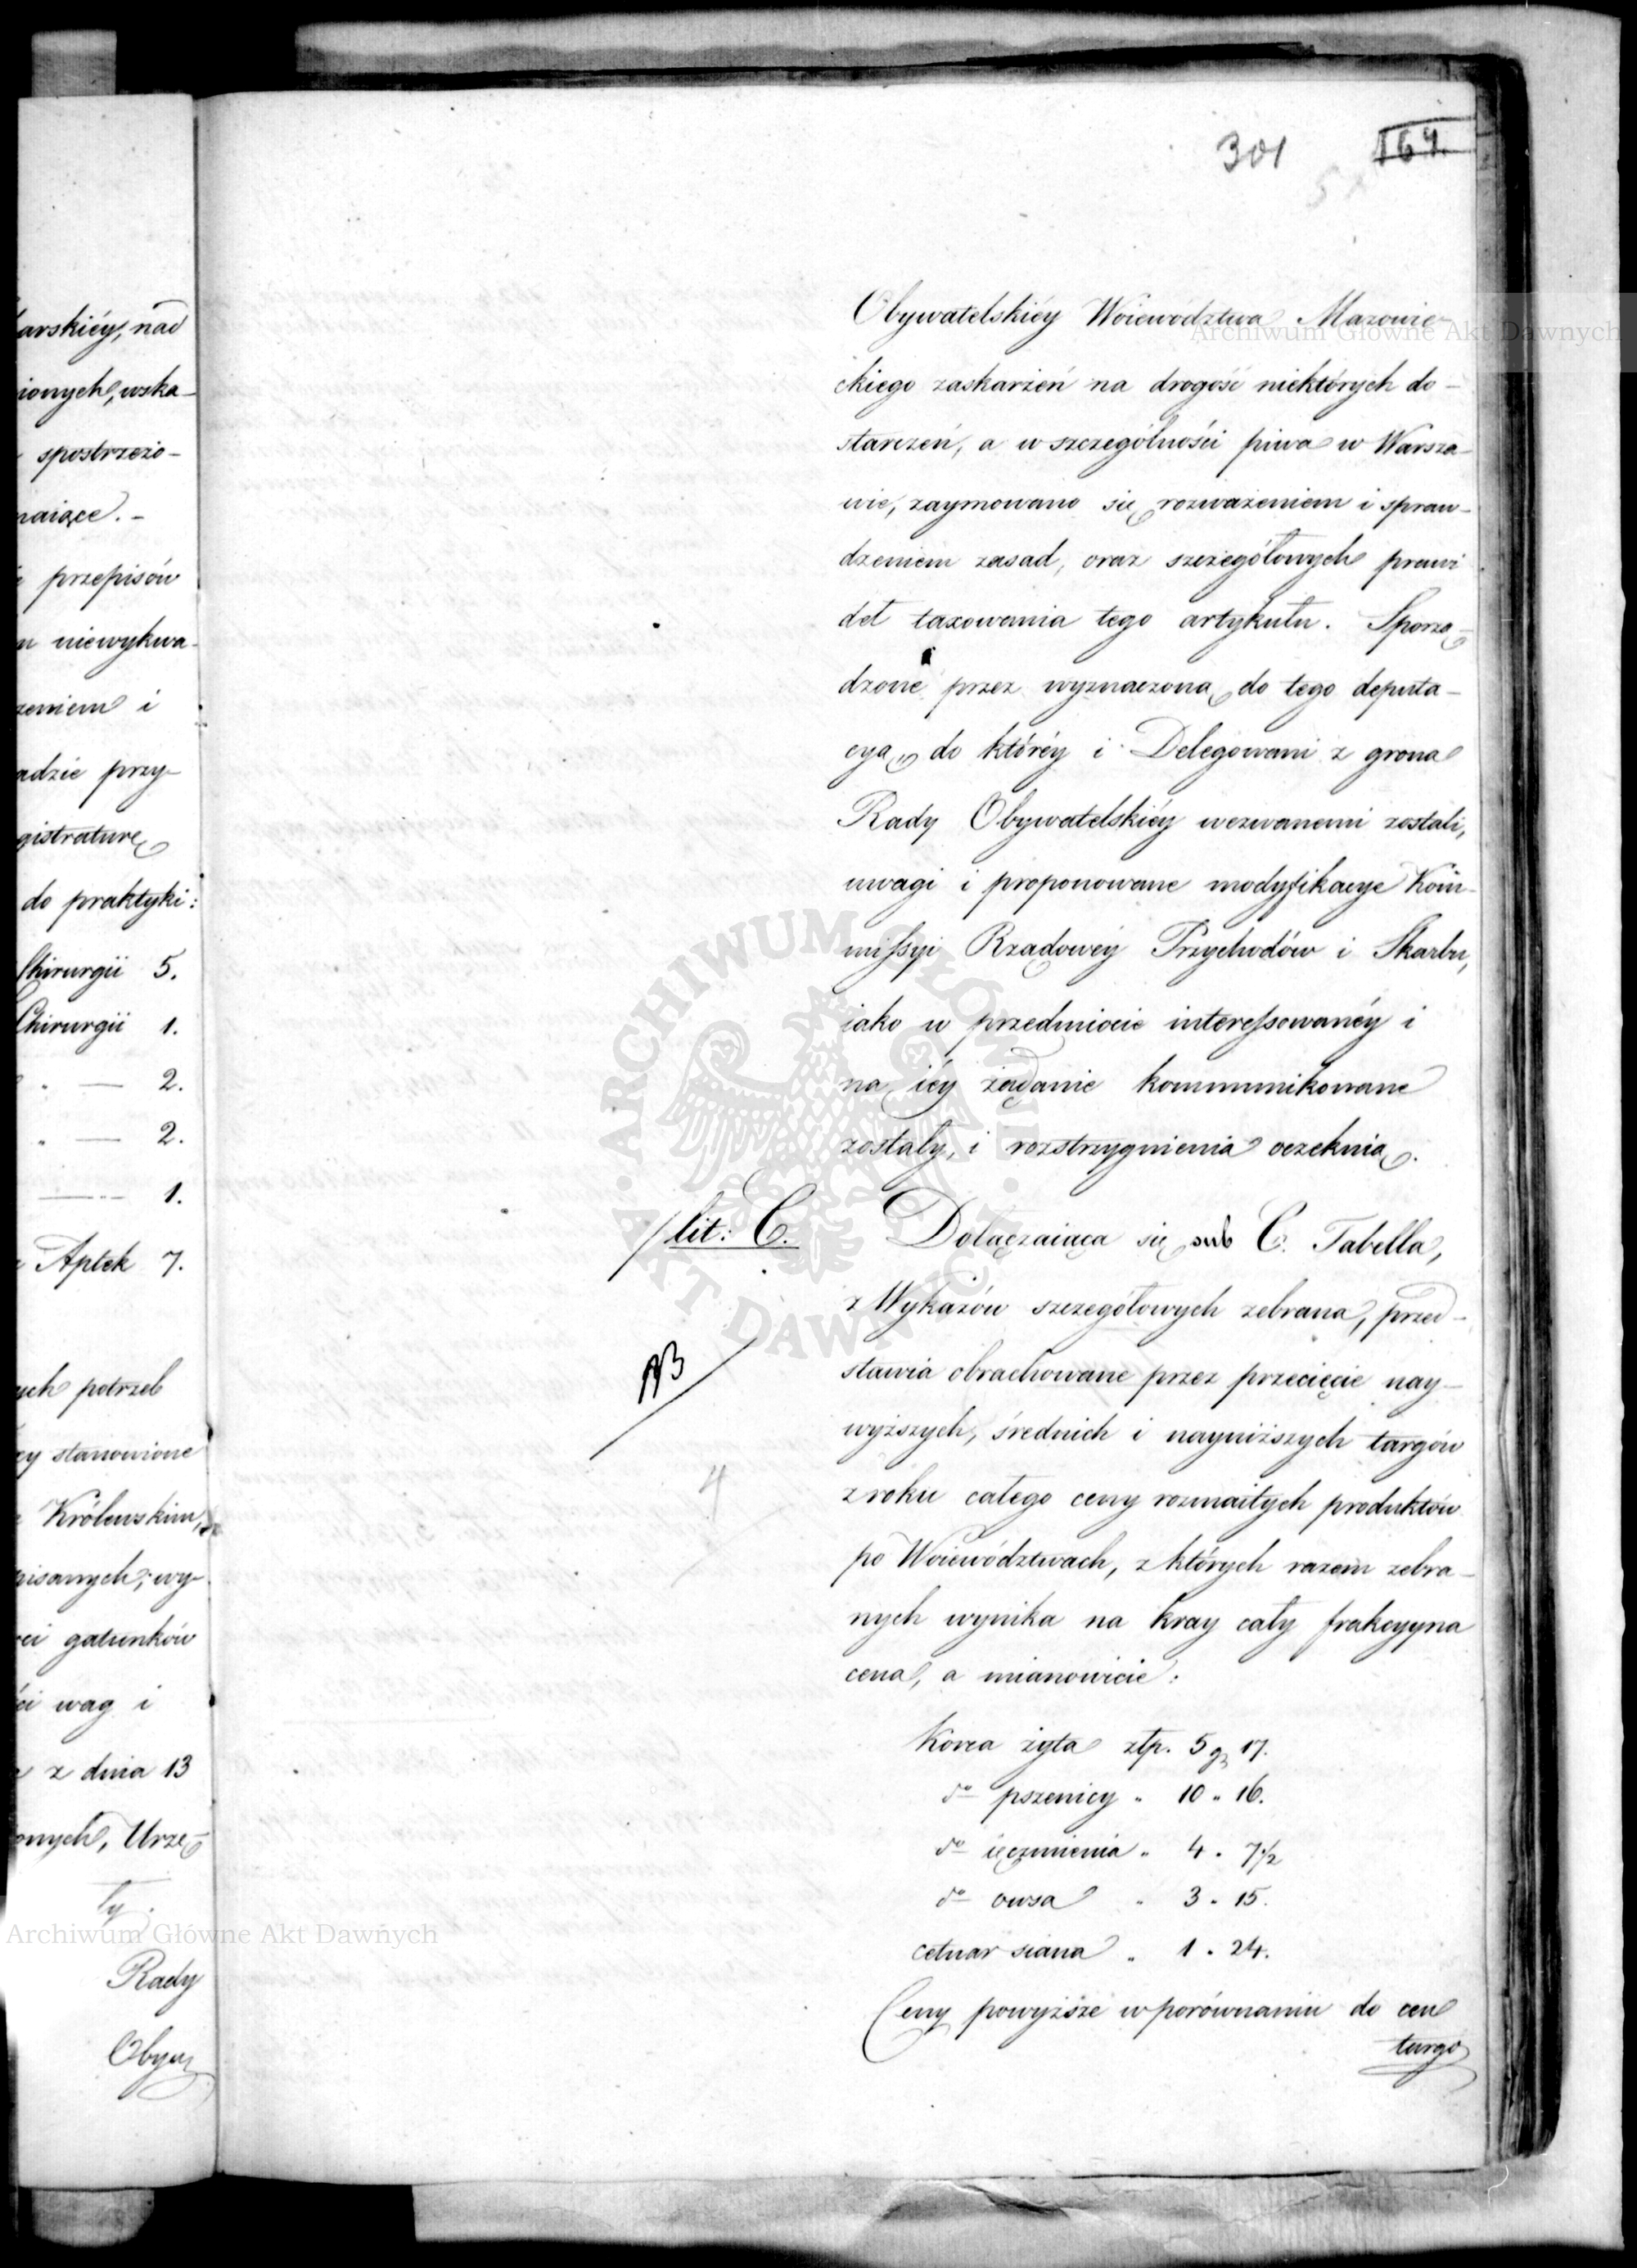 301
164.
arskiéy, nad
ionych, wska-
spostrzeżo-
naiące. -
przepisów
niewykwa-
zeniem i
adzie przy-
gistraturę
do praktyki:
Chirurgii 5.
Chirurgii 1.
" — 2.
" — 2.
— 1.
Aptek 7.
ych potrzeb
ey stanowione
Królewskim,
pisanych, wy-
ci gatunków
ci wag i
z dnia 13
onych, Urzę-
ły.
Rady
Obyw
Obywatelskiéy Woiewództwa Mazowie-
ckiego zaskarżeń na drogość niektórych do-
starczeń, a w szczególności piwa w Warsza-
wie, zaymowano się rozważeniem i spraw-
dzeniem zasad, oraz szczegółowych prawi
deł taxowania tego artykułu. Sporzą-
dzone przez wyznaczoną do tego deputa-
cyą, do któréy i Delegowani z grona
Rady Obywatelskiéy wezwanemi zostali,
uwagi i proponowane modyfikacye Kom-
missyi Rządowéy Przychodów i Skarbu,
iako w przedmiocie interessowanéy i
na iéy żądanie kommunikowane
zostały, i rozstrzygnienia oczekuią.
/lit: C.
Dołączaiąca się sub C. Tabella,
z Wykazów szczegółowych zebrana, przed-
stawia obrachowane przez przecięcie nay-
wyższych, średnich i nayniższych targów
z roku całego ceny rozmaitych produktów
po Woiewództwach, z których razem zebra-
nych wynika na kray cały frakcyyna
cena, a mianowicie:
Korca żyta złp. 5 gr 17.
do pszenicy " 10 " 16.
do ięczmienia " 4 " 7½
do owsa " 3 " 15.
cetnar siana " 1 " 24.
Ceny powyższe w porównaniu do cen
targo
Archiwum Główne Akt Dawnych
Archiwum Główne Akt Dawnych
ARCHIWUM GŁÓWNE AKT DAWNYCH